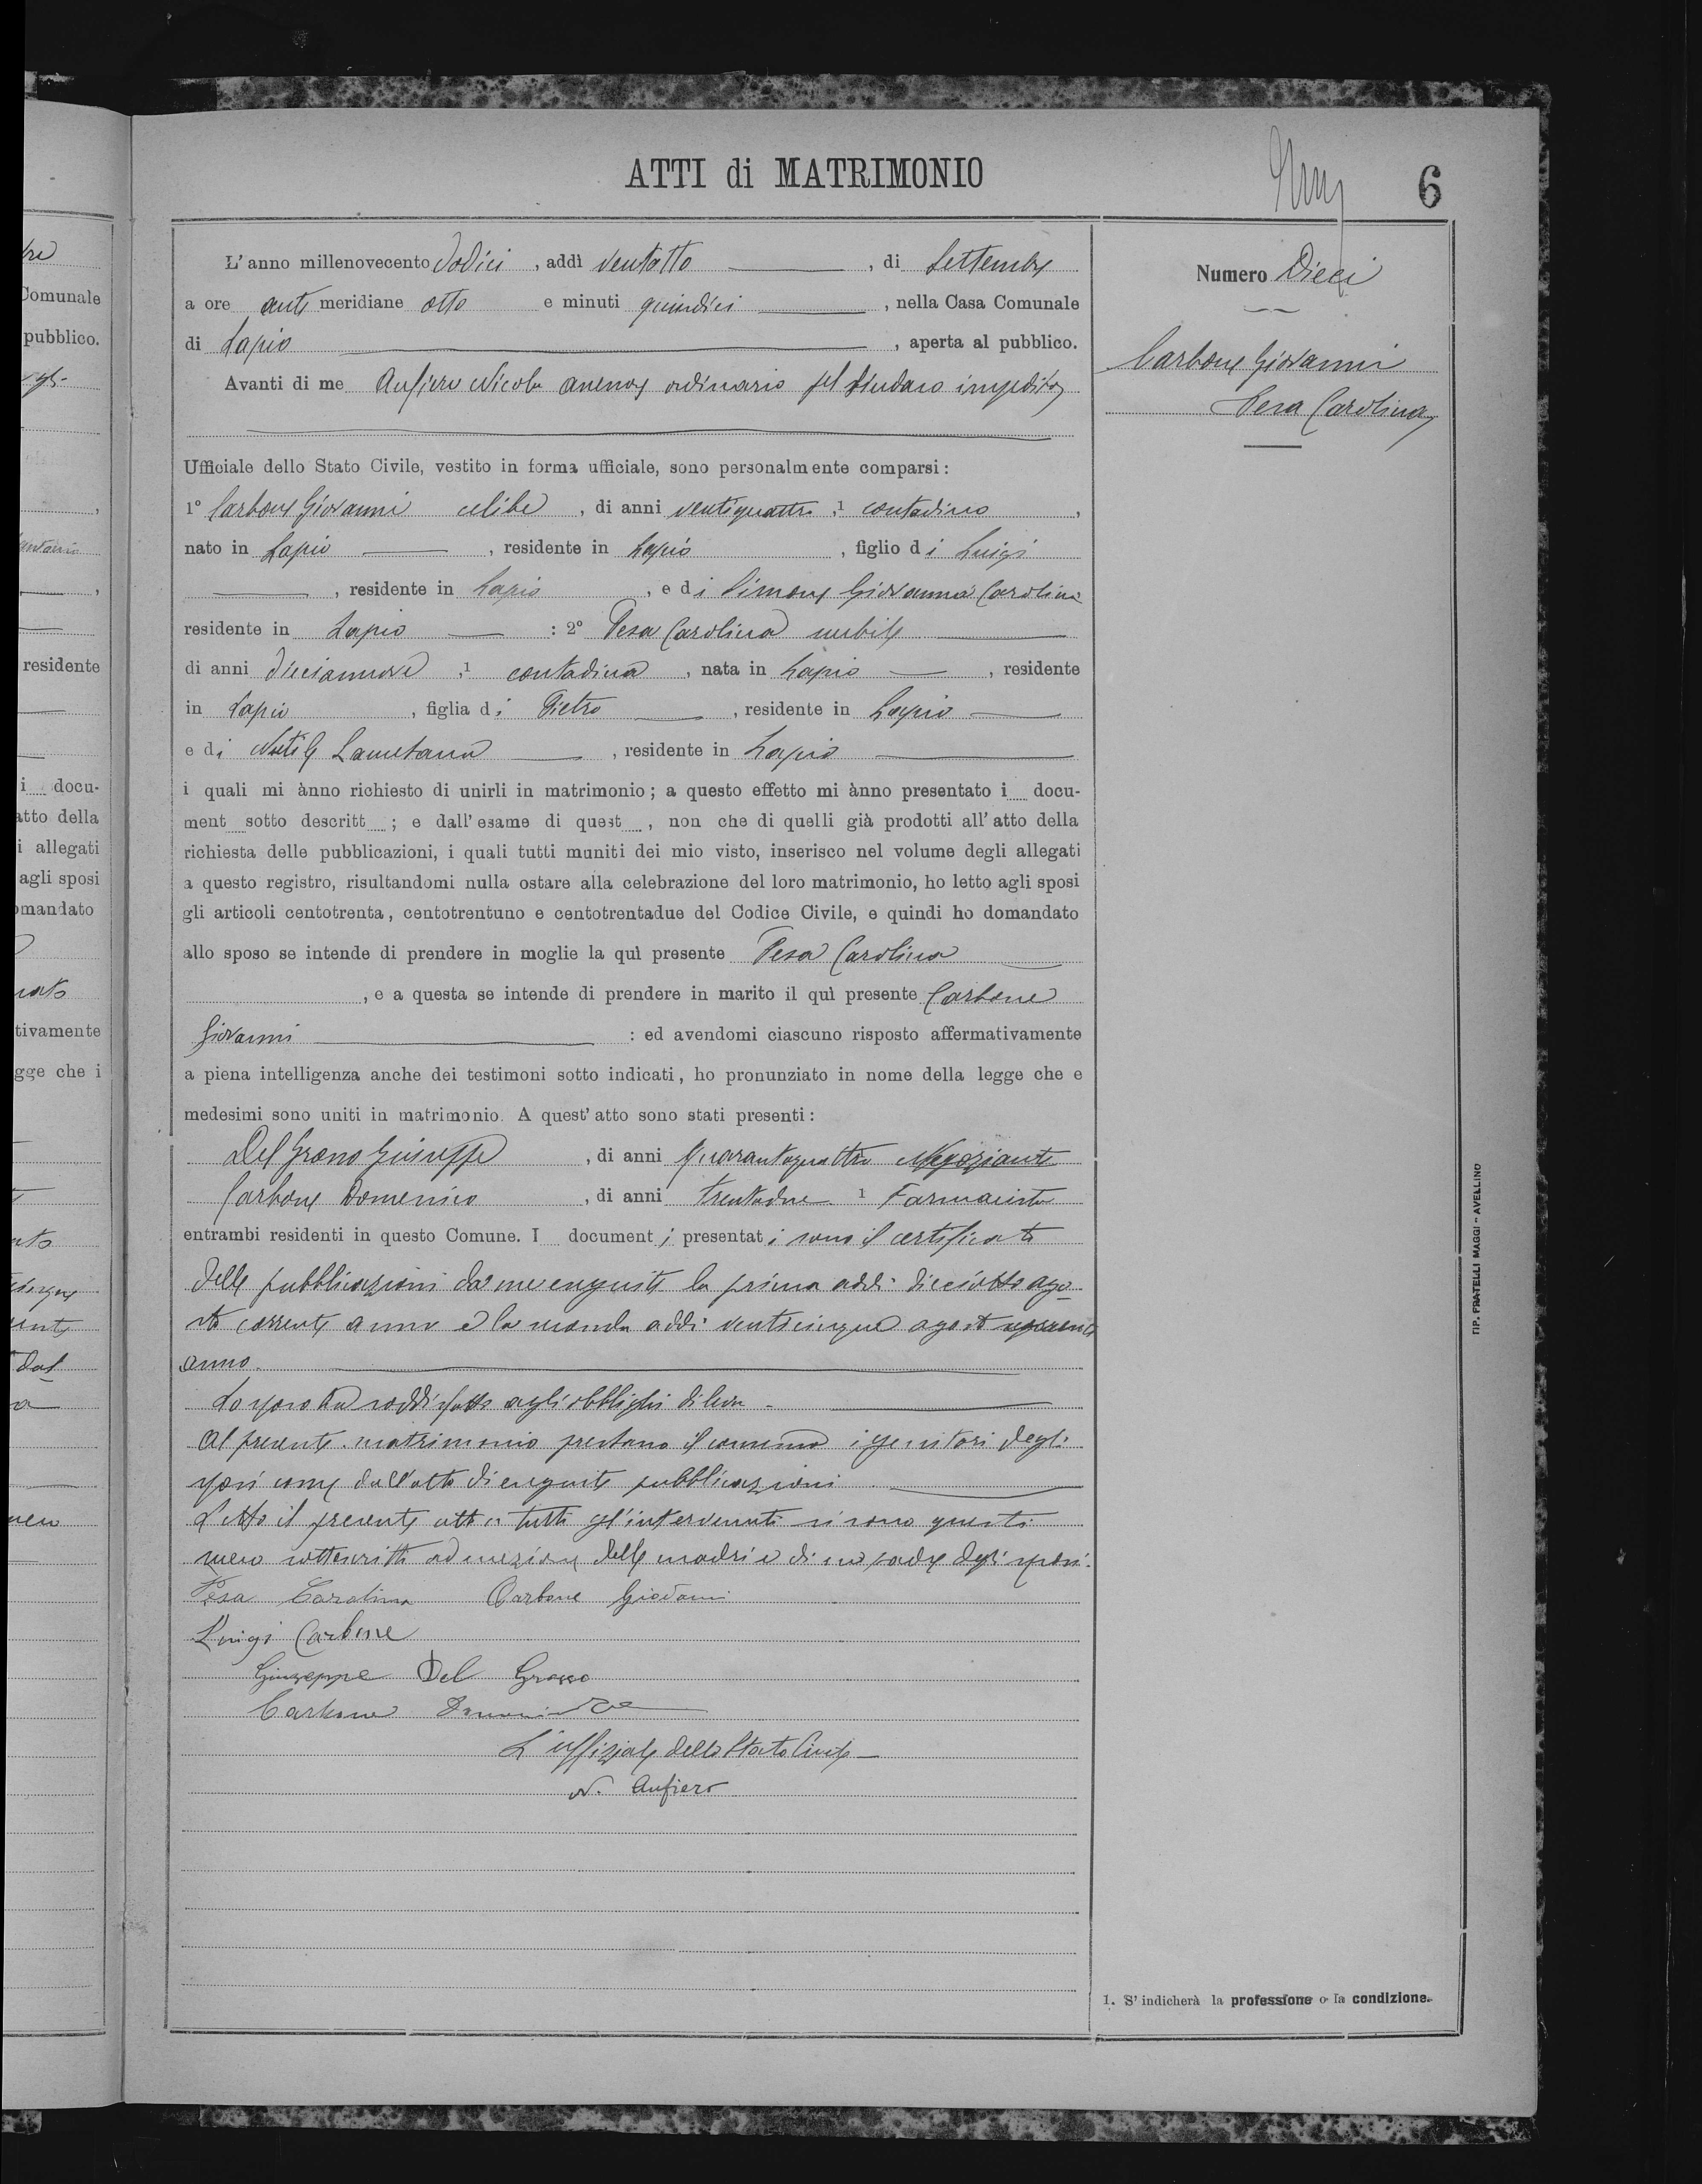 ATTI di MATRIMONIO
6
L'anno millenovecento dodici, addì ventotto, di Settembre
a ore anti meridiane otto e minuti quindici, nella Casa Comunale
di Lapio, aperta al pubblico.
Avanti di me Aufiero Nicola assessore ordinario pel Sindaco impedito
Ufficiale dello Stato Civile, vestito in forma ufficiale, sono personalmente comparsi:
1º Carbone Giovanni celibe, di anni ventiquattro, 1 contadino,
nato in Lapio, residente in Lapio, figlio di Luigi
, residente in Lapio, e di Simone Giovanna Carolina
residente in Lapio : 2º Pesa Carolina nubile
di anni diciannove, 1 contadina, nata in Lapio, residente
in Lapio, figlia di Pietro, residente in Lapio
e di, residente in Lapio
i quali mi ànno richiesto di unirli in matrimonio; a questo effetto mi ànno presentato i docu-
ment sotto descritt ; e dall'esame di quest , non che di quelli già prodotti all'atto della
richiesta delle pubblicazioni, i quali tutti muniti dei mio visto, inserisco nel volume degli allegati
a questo registro, risultandomi nulla ostare alla celebrazione del loro matrimonio, ho letto agli sposi
gli articoli centotrenta, centotrentuno e centotrentadue del Codice Civile, e quindi ho domandato
allo sposo se intende di prendere in moglie la quì presente Pesa Carolina
, e a questa se intende di prendere in marito il quì presente Carbone
Giovanni : ed avendomi ciascuno risposto affermativamente
a piena intelligenza anche dei testimoni sotto indicati, ho pronunziato in nome della legge che e
medesimi sono uniti in matrimonio. A quest'atto sono stati presenti:
Del Grosso Giuseppe, di anni quarantaquattro Negoziante
Carbone Domenico, di anni trentadue 1 Farmacista
entrambi residenti in questo Comune. I documenti presentati sono il certificato
delle pubblicazioni da me eseguite la prima addì diciotto ago-
sto corrente anno e la seconda addì venticinque agosto corrente
anno.
Lo sposo ha soddisfatto agli obblighi di leva.
Al presente matrimonio prestano il consenso i genitori degli
sposi come dall'atto di eseguite pubblicazioni.
Letto il presente atto a tutti gl'intervenuti si sono questi
meco sottoscritti ad eccezione delle madri e di un padre degli sposi.
Pesa Carolina Carbone Giovanni
Luigi Carbone
Giuseppe Del Grosso
Carbone Domenico
L'uffiziale dello Stato Civile
N. Aufiero
Numero Dieci
Carbone Giovanni
Pesa Carolina
1. S'indicherà la professione o la condizione.
TIP. FRATELLI MAGGI - AVELLINO
re
Comunale
pubblico.
residente
i docu-
atto della
i allegati
agli sposi
omandato
tivamente
gge che i